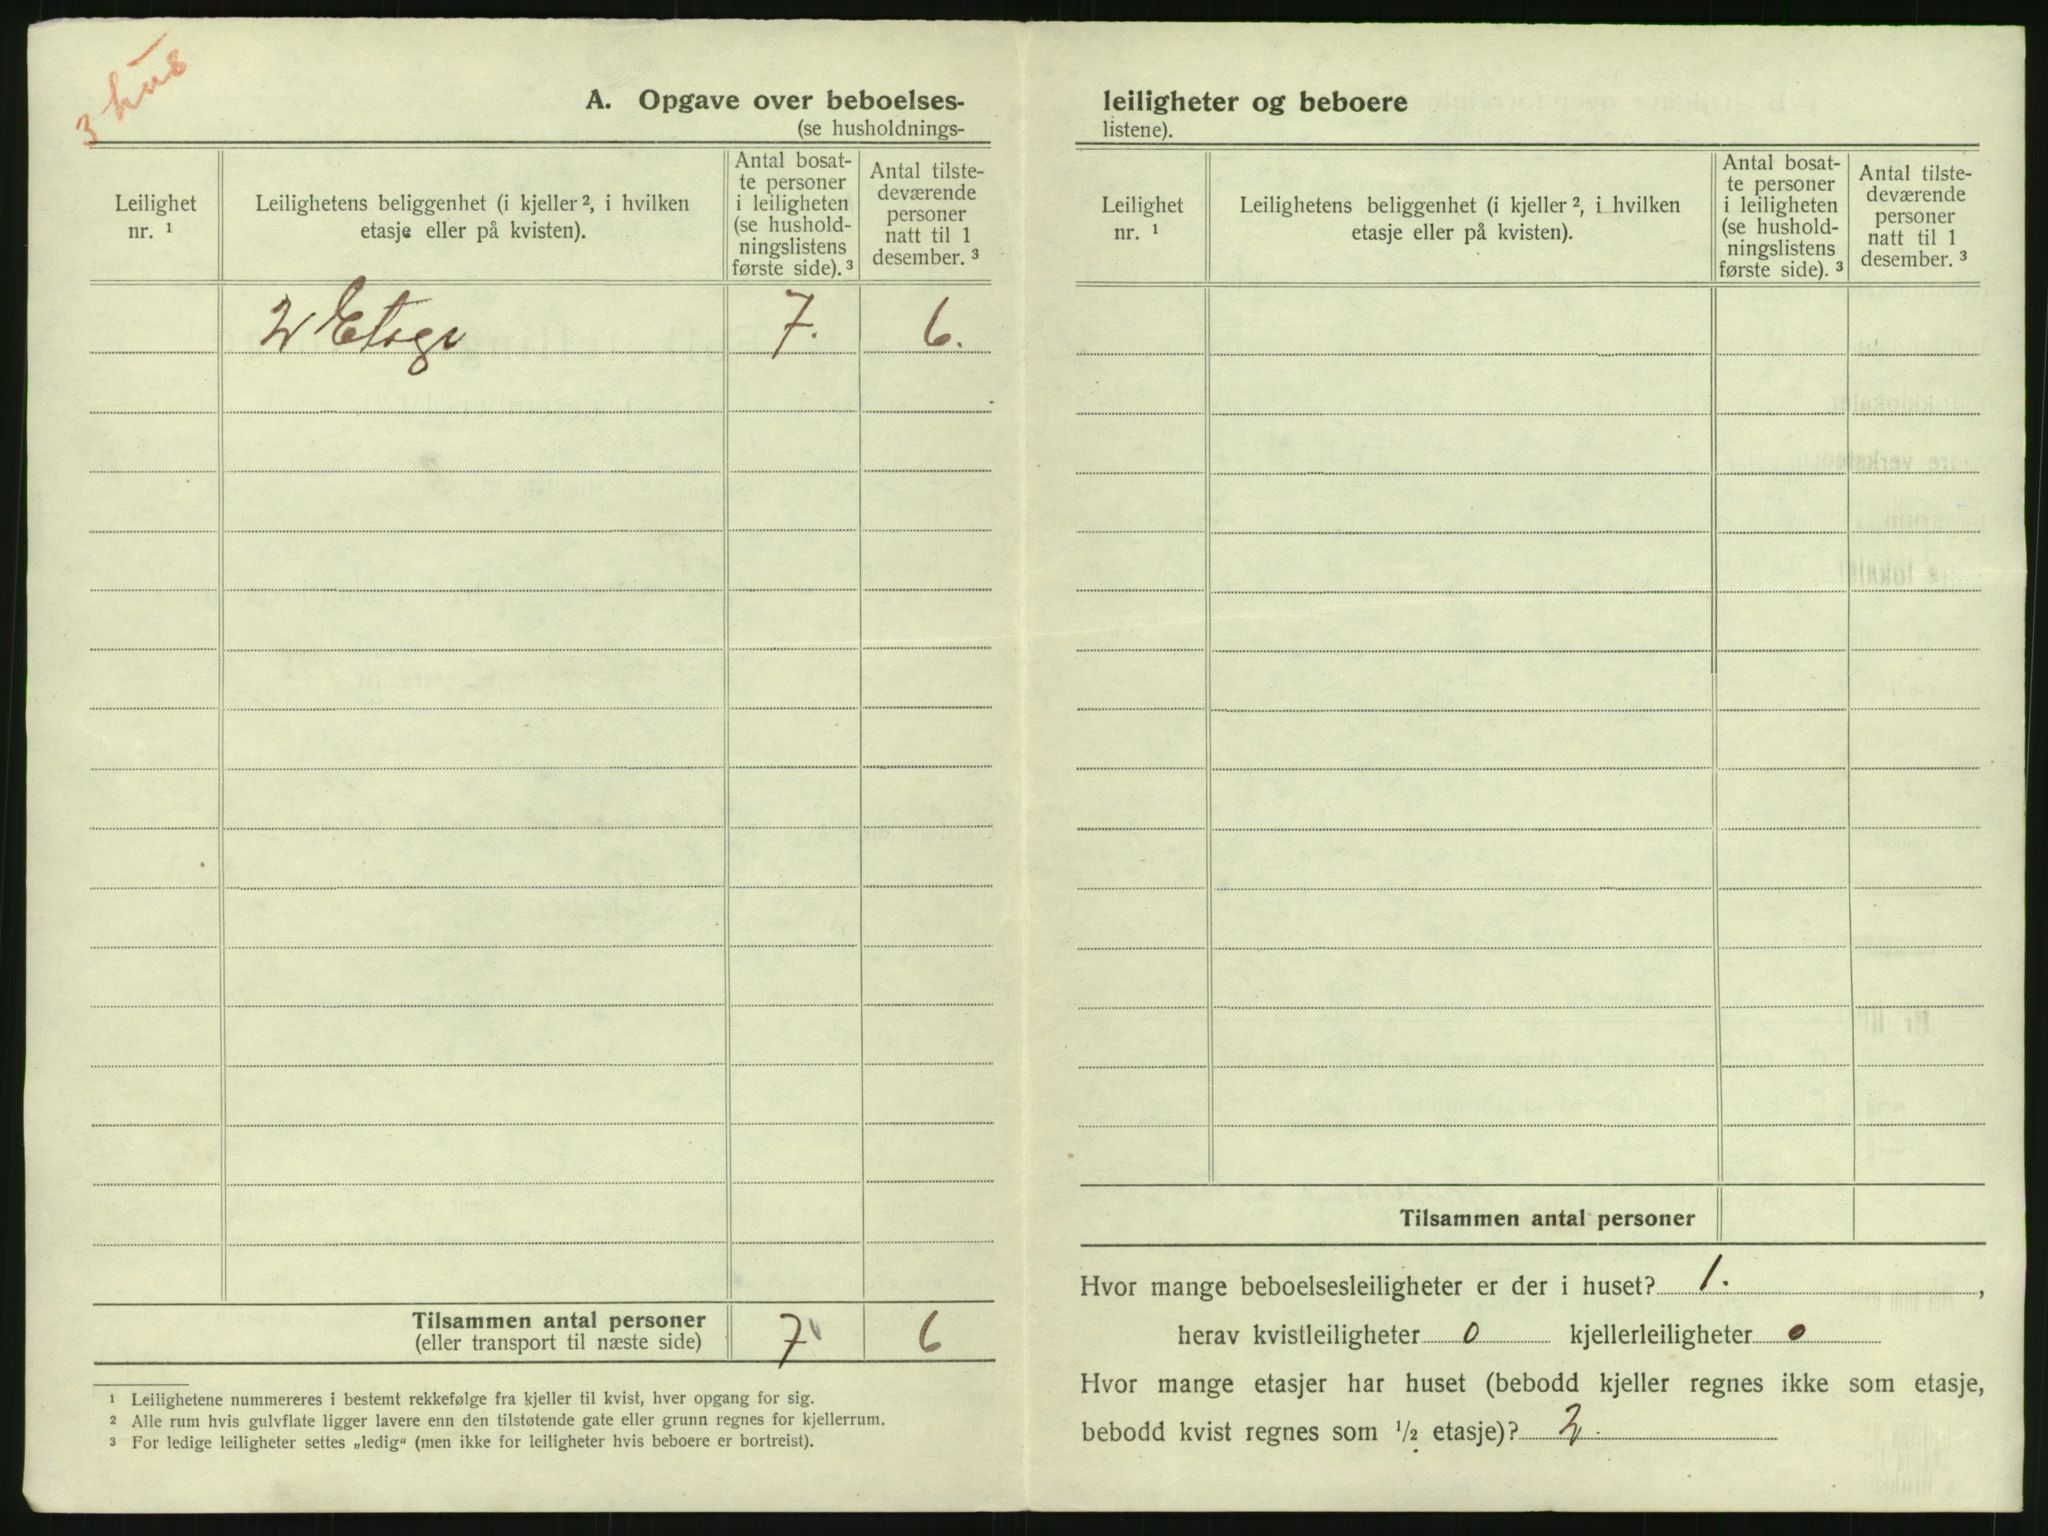 3 hus
A. Opgave over beboelses-
(se husholdnings-
Leilighet
nr. ¹
Leilighetens beliggenhet (i kjeller ², i hvilken
etasje eller på kvisten).
Antal bosat-
te personer
i leiligheten
(se hushold-
ningslistens
første side). ³
Antal tilste-
deværende
personer
natt til 1
desember. ³
2 Etage
7.
6.
Tilsammen antal personer
(eller transport til næste side)
7
6
¹ Leilighetene nummereres i bestemt rekkefølge fra kjeller til kvist, hver opgang for sig.
² Alle rum hvis gulvflate ligger lavere enn den tilstøtende gate eller grunn regnes for kjellerrum.
³ For ledige leiligheter settes „ledig“ (men ikke for leiligheter hvis beboere er bortreist).
leiligheter og beboere
listene).
Leilighet
nr. ¹
Leilighetens beliggenhet (i kjeller ², i hvilken
etasje eller på kvisten).
Antal bosat-
te personer
i leiligheten
(se hushold-
ningslistens
første side). ³
Antal tilste-
deværende
personer
natt til 1
desember. ³
Tilsammen antal personer
Hvor mange beboelsesleiligheter er der i huset? 1. ,
herav kvistleiligheter 0 kjellerleiligheter 0
Hvor mange etasjer har huset (bebodd kjeller regnes ikke som etasje,
bebodd kvist regnes som ½ etasje)? 2.